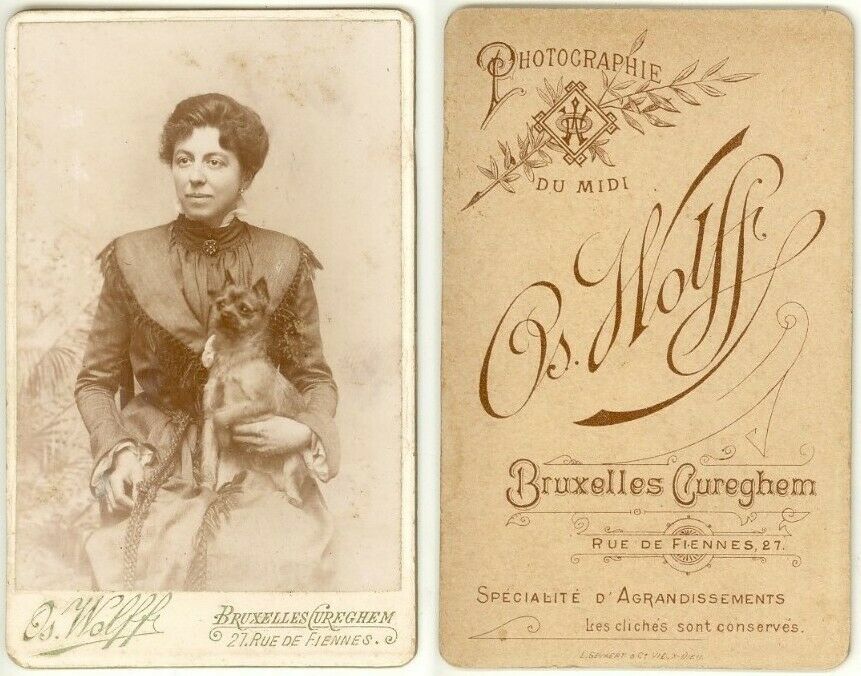 Os. Wolff
BRUXELLES CUREGHEM
27. RUE DE FIENNES.
PHOTOGRAPHIE
DU MIDI
Os. Wolff.
Bruxelles Cureghem
RUE DE FIENNES, 27.
SPÉCIALITÉ D'AGRANDISSEMENTS
Les clichés sont conservés.